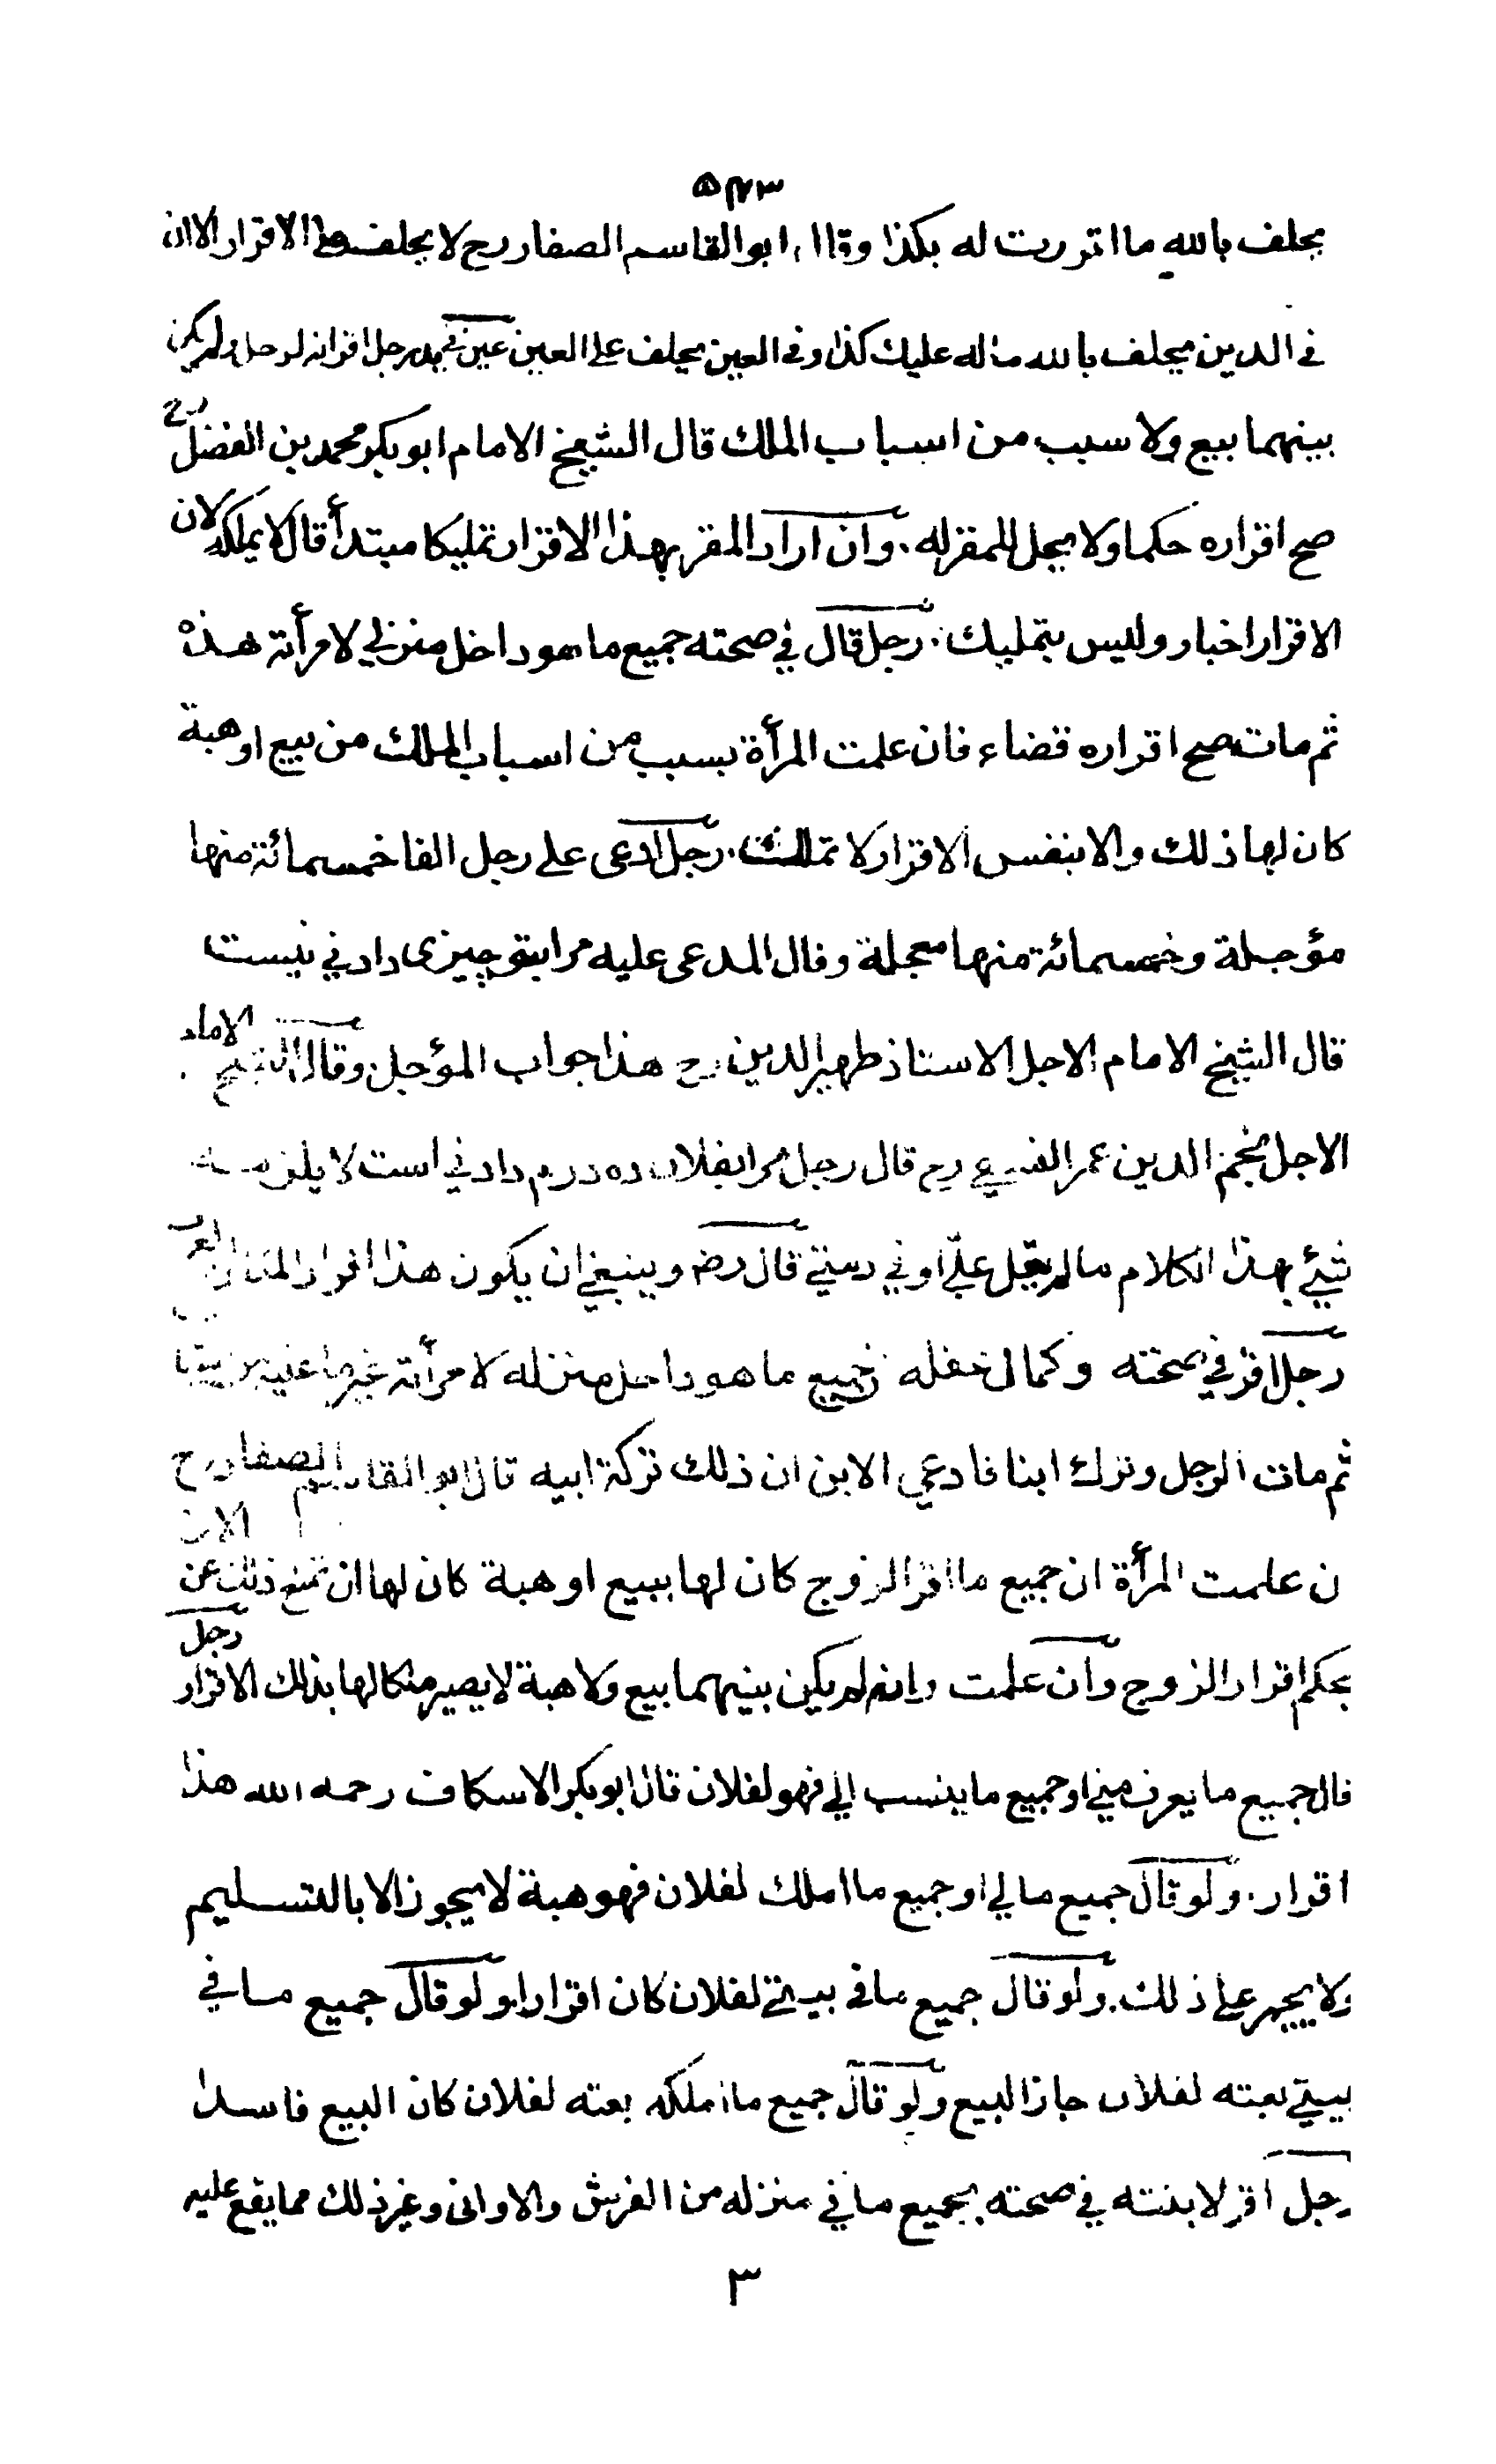 ٥٢٣
يحلف بالله ما اقررت له بكذا وقال ابو القاسم الصفار رح لا يحلف على الاقرار الا ان
في الدين يحلف بالله ماله عليك كذا وفي العين يحلف على العين عين في يد رجل اقر انه لرجل ولم يكن
بينهما بيع ولا سبب من اسباب الملك قال الشيخ الامام ابو بكر محمد بن الفضل رح
صح اقراره حكما ولا يحل للمقر له . وان اراد المقر بهذا الاقرار تمليكا مبتدأ قال لا يملكه لان
الاقرار اخبار وليس بتمليك . رجل قال في صحته جميع ما هو داخل منزلي لامرأته هذه
ثم مات صح اقراره قضاء فان علمت المرأة بسبب من اسباب الملك من بيع او هبة
كان لها ذلك والا بنفس الاقرار لا تملك . رجل ادعى على رجل الفا خمسمائة منها
مؤجلة وخمسمائة منها معجلة وقال المدعى عليه مرا بتو چيزى دادني نيست
قال الشيخ الامام الاجل الاستاذ ظهير الدين رح هذا جواب المؤجل وقال الشيخ الامام
الاجل نجم الدين عمر النسفي رح قال رجل مرا بفلان ده درم دادني است لا يلزمه
شيئ بهذا الكلام ما لم يقل عليّ او في ذمتي قال رض وينبغي ان يكون هذا اقرار
رجل اقر في صحته وكمال عقله بجميع ما هو داخل منزله لامرأته غير ما عليه من ثيابه
ثم مات الرجل وترك ابنا فادعي الابن ان ذلك تركة ابيه قال ابو القاسم الصفار رح
ن علمت المرأة ان جميع ما اقر الزوج كان لها ببيع او هبة كان لها ان تمنع ذلك عن الابن
بحكم اقرار الزوج وان علمت وانه لم يكن بينهما بيع ولا هبة لا يصير ملكا لها بذلك الاقرار رجل
قال جميع ما يعرف مني او جميع ما ينسب الي فهو لفلان قال ابو بكر الاسكاف رحمه الله هذا
اقرار . ولو قال جميع مالي او جميع ما املك لفلان فهو هبة لا يجوز الا بالتسليم
ولا يجبر على ذلك . ولو قال جميع ما في بيتي لفلان كان اقرارا ولو قال جميع ما في
بيتي بعته لفلان جاز البيع ولو قال جميع ما املكه بعته لفلان كان البيع فاسدا
رجل اقر لابنته في صحته بجميع ما في منزله من الفرش والاواني وغير ذلك مما يقع عليه
٣